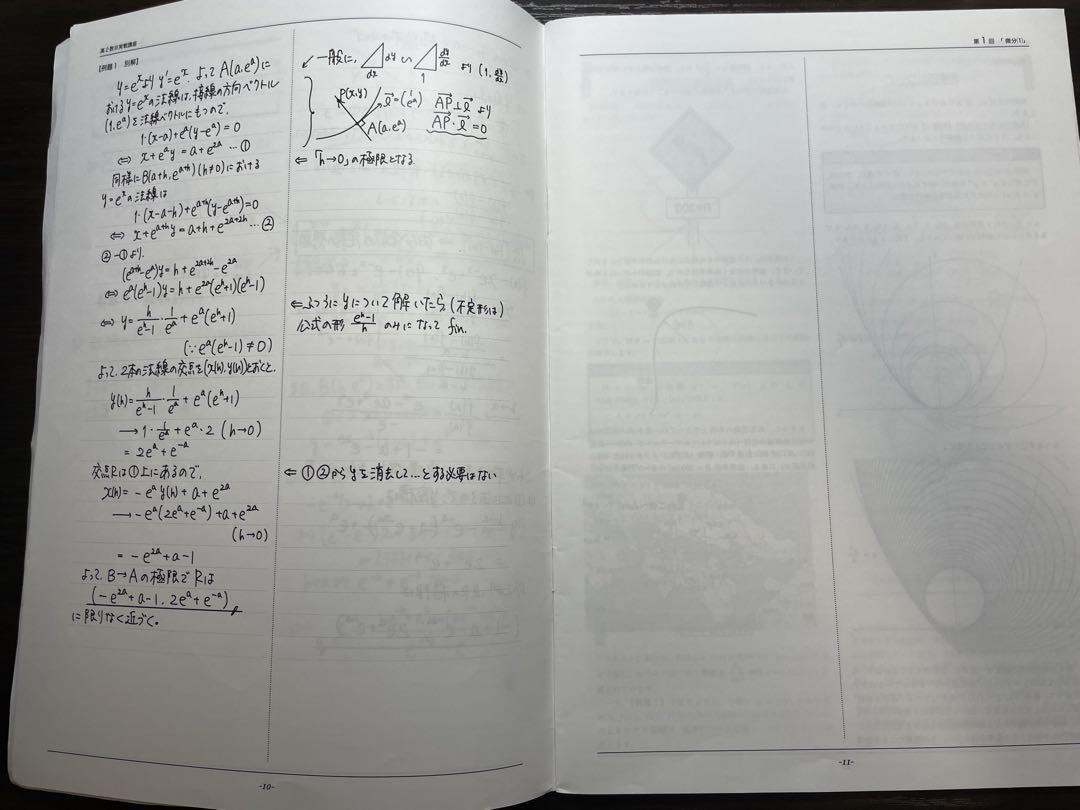 高2数Ⅲ実戦講座
【例題1 別解】
y=e^xより y'=e^x. よって A(a, e^a)に
おけるy=e^xの法線は, 接線の方向ベクトル
(1, e^a)を法線ベクトルにもつので,
1·(x-a)+e^a(y-e^a)=0
⇔ x+e^a y=a+e^{2a} …①
同様にB(a+h, e^{a+h})(h≠0)における
y=e^xの法線は
1·(x-a-h)+e^{a+h}(y-e^{a+h})=0
⇔ x+e^{a+h}y=a+h+e^{2a+2h} …②
②-①より.
(e^{a+h}-e^a)y=h+e^{2a+2h}-e^{2a}
⇔ e^a(e^h-1)y=h+e^{2a}(e^h+1)(e^h-1)
⇔ y=\frac{h}{e^h-1}·\frac{1}{e^a}+e^a(e^h+1)
(∵e^a(e^h-1)≠0)
よって, 2本の法線の交点を(x(h), y(h))とおくと,
y(h)=\frac{h}{e^h-1}·\frac{1}{e^a}+e^a(e^h+1)
→1·\frac{1}{e^a}+e^a·2 (h→0)
=2e^a+e^{-a}
交点Rは①上にあるので,
x(h)=-e^a y(h)+a+e^{2a}
→-e^a(2e^a+e^{-a})+a+e^{2a}
(h→0)
=-e^{2a}+a-1
よって, B→Aの極限でRは
(-e^{2a}+a-1, 2e^a+e^{-a})
に限りなく近づく。
↙一般に, dy dx ∽ \frac{dy}{dx} 1 より (1, \frac{dy}{dx})
P(x,y) \vec{l}=(1 e^a) \vec{AP}⊥\vec{l} より
A(a, e^a) \vec{AP}·\vec{l}=0
⇐「h→0」の極限となる.
⇐ふつうにyについて解いたら, (不定形は)
公式の形 \frac{e^h-1}{h} のみになって fin.
⇐①②からyを消去して…とする必要はない
-10-
第1回「微分(1)」
-11-